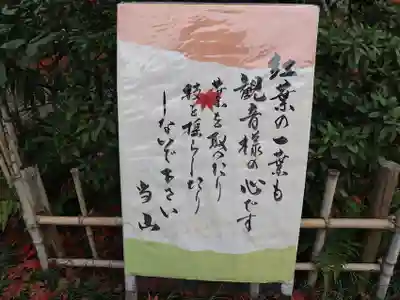 紅葉の一葉も
観音様の心です
葉を取ったり
枝を揺らしたり
しないで下さい
当山